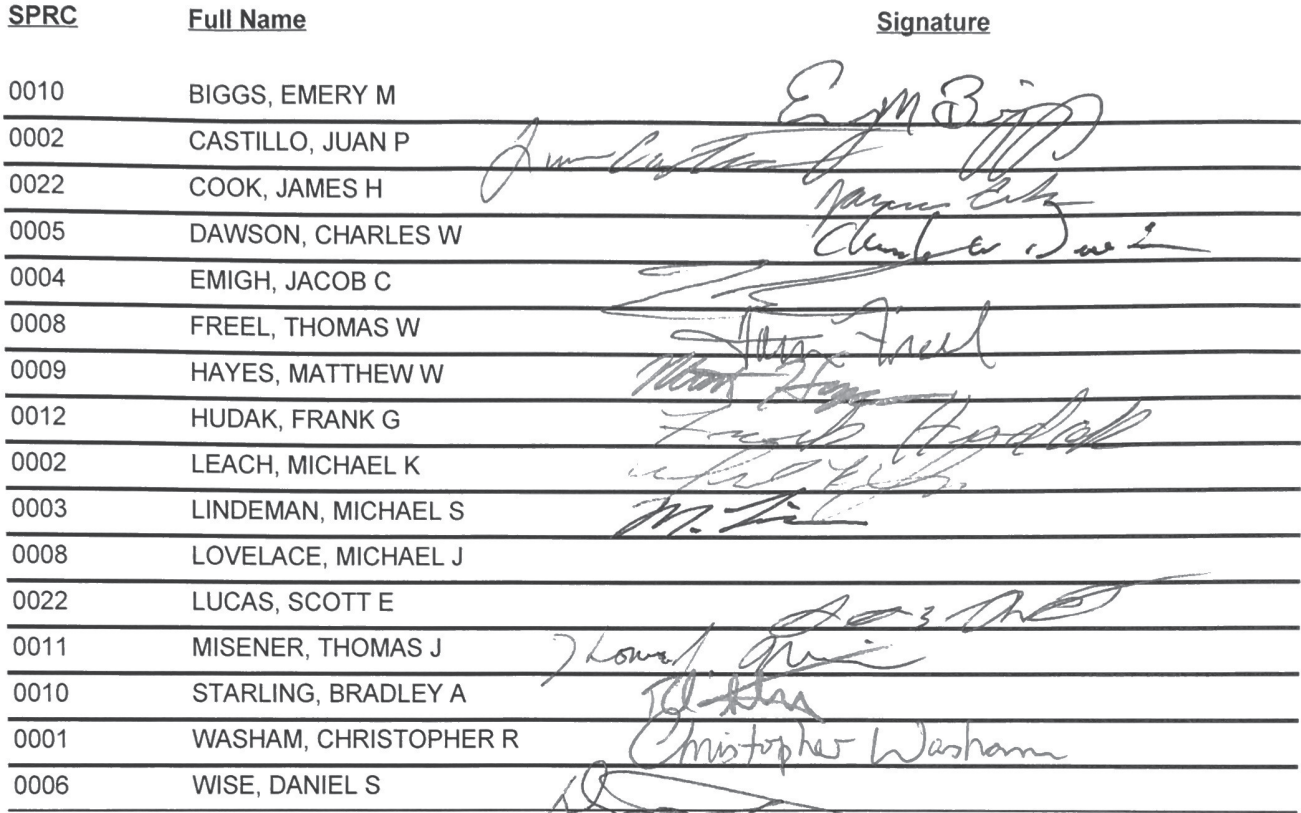 SPRC Full Name Signature
0010 BIGGS, EMERY M E M Biggs
0002 CASTILLO, JUAN P Juan Castillo
0022 COOK, JAMES H James
0005 DAWSON, CHARLES W Charles W Daw
0004 EMIGH, JACOB C
0008 FREEL, THOMAS W Thomas Freel
0009 HAYES, MATTHEW W Matt Hayes
0012 HUDAK, FRANK G Frank Hudak
0002 LEACH, MICHAEL K
0003 LINDEMAN, MICHAEL S M. Lin
0008 LOVELACE, MICHAEL J
0022 LUCAS, SCOTT E
0011 MISENER, THOMAS J Thomas J.
0010 STARLING, BRADLEY A
0001 WASHAM, CHRISTOPHER R Christopher Washam
0006 WISE, DANIEL S